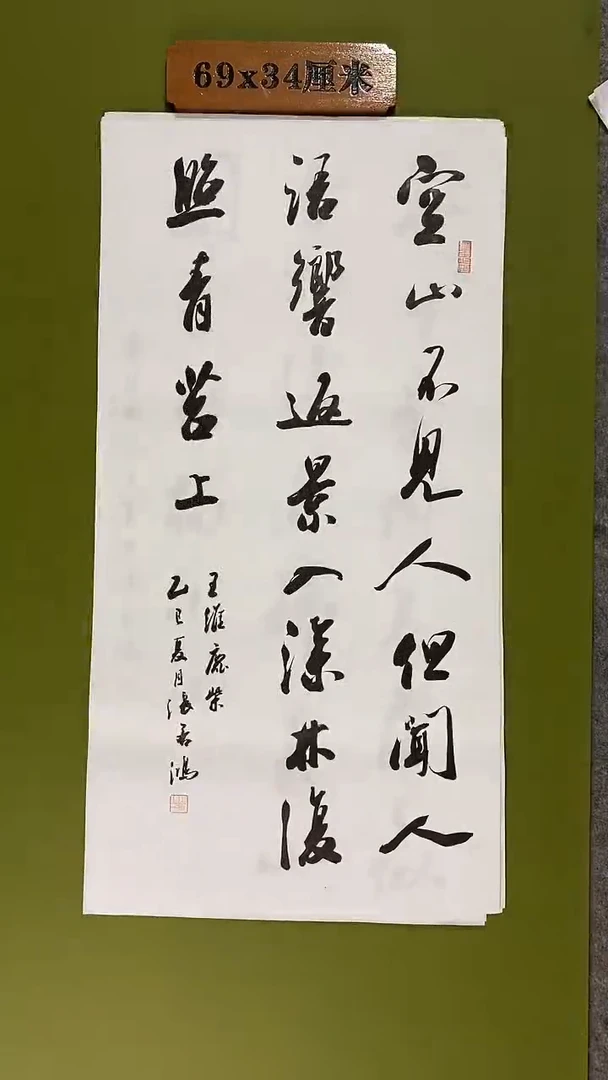 69x34厘米
空山不見人但聞人
語響返景入深林復
照青苔上
王維鹿柴
乙巳夏月張君鴻